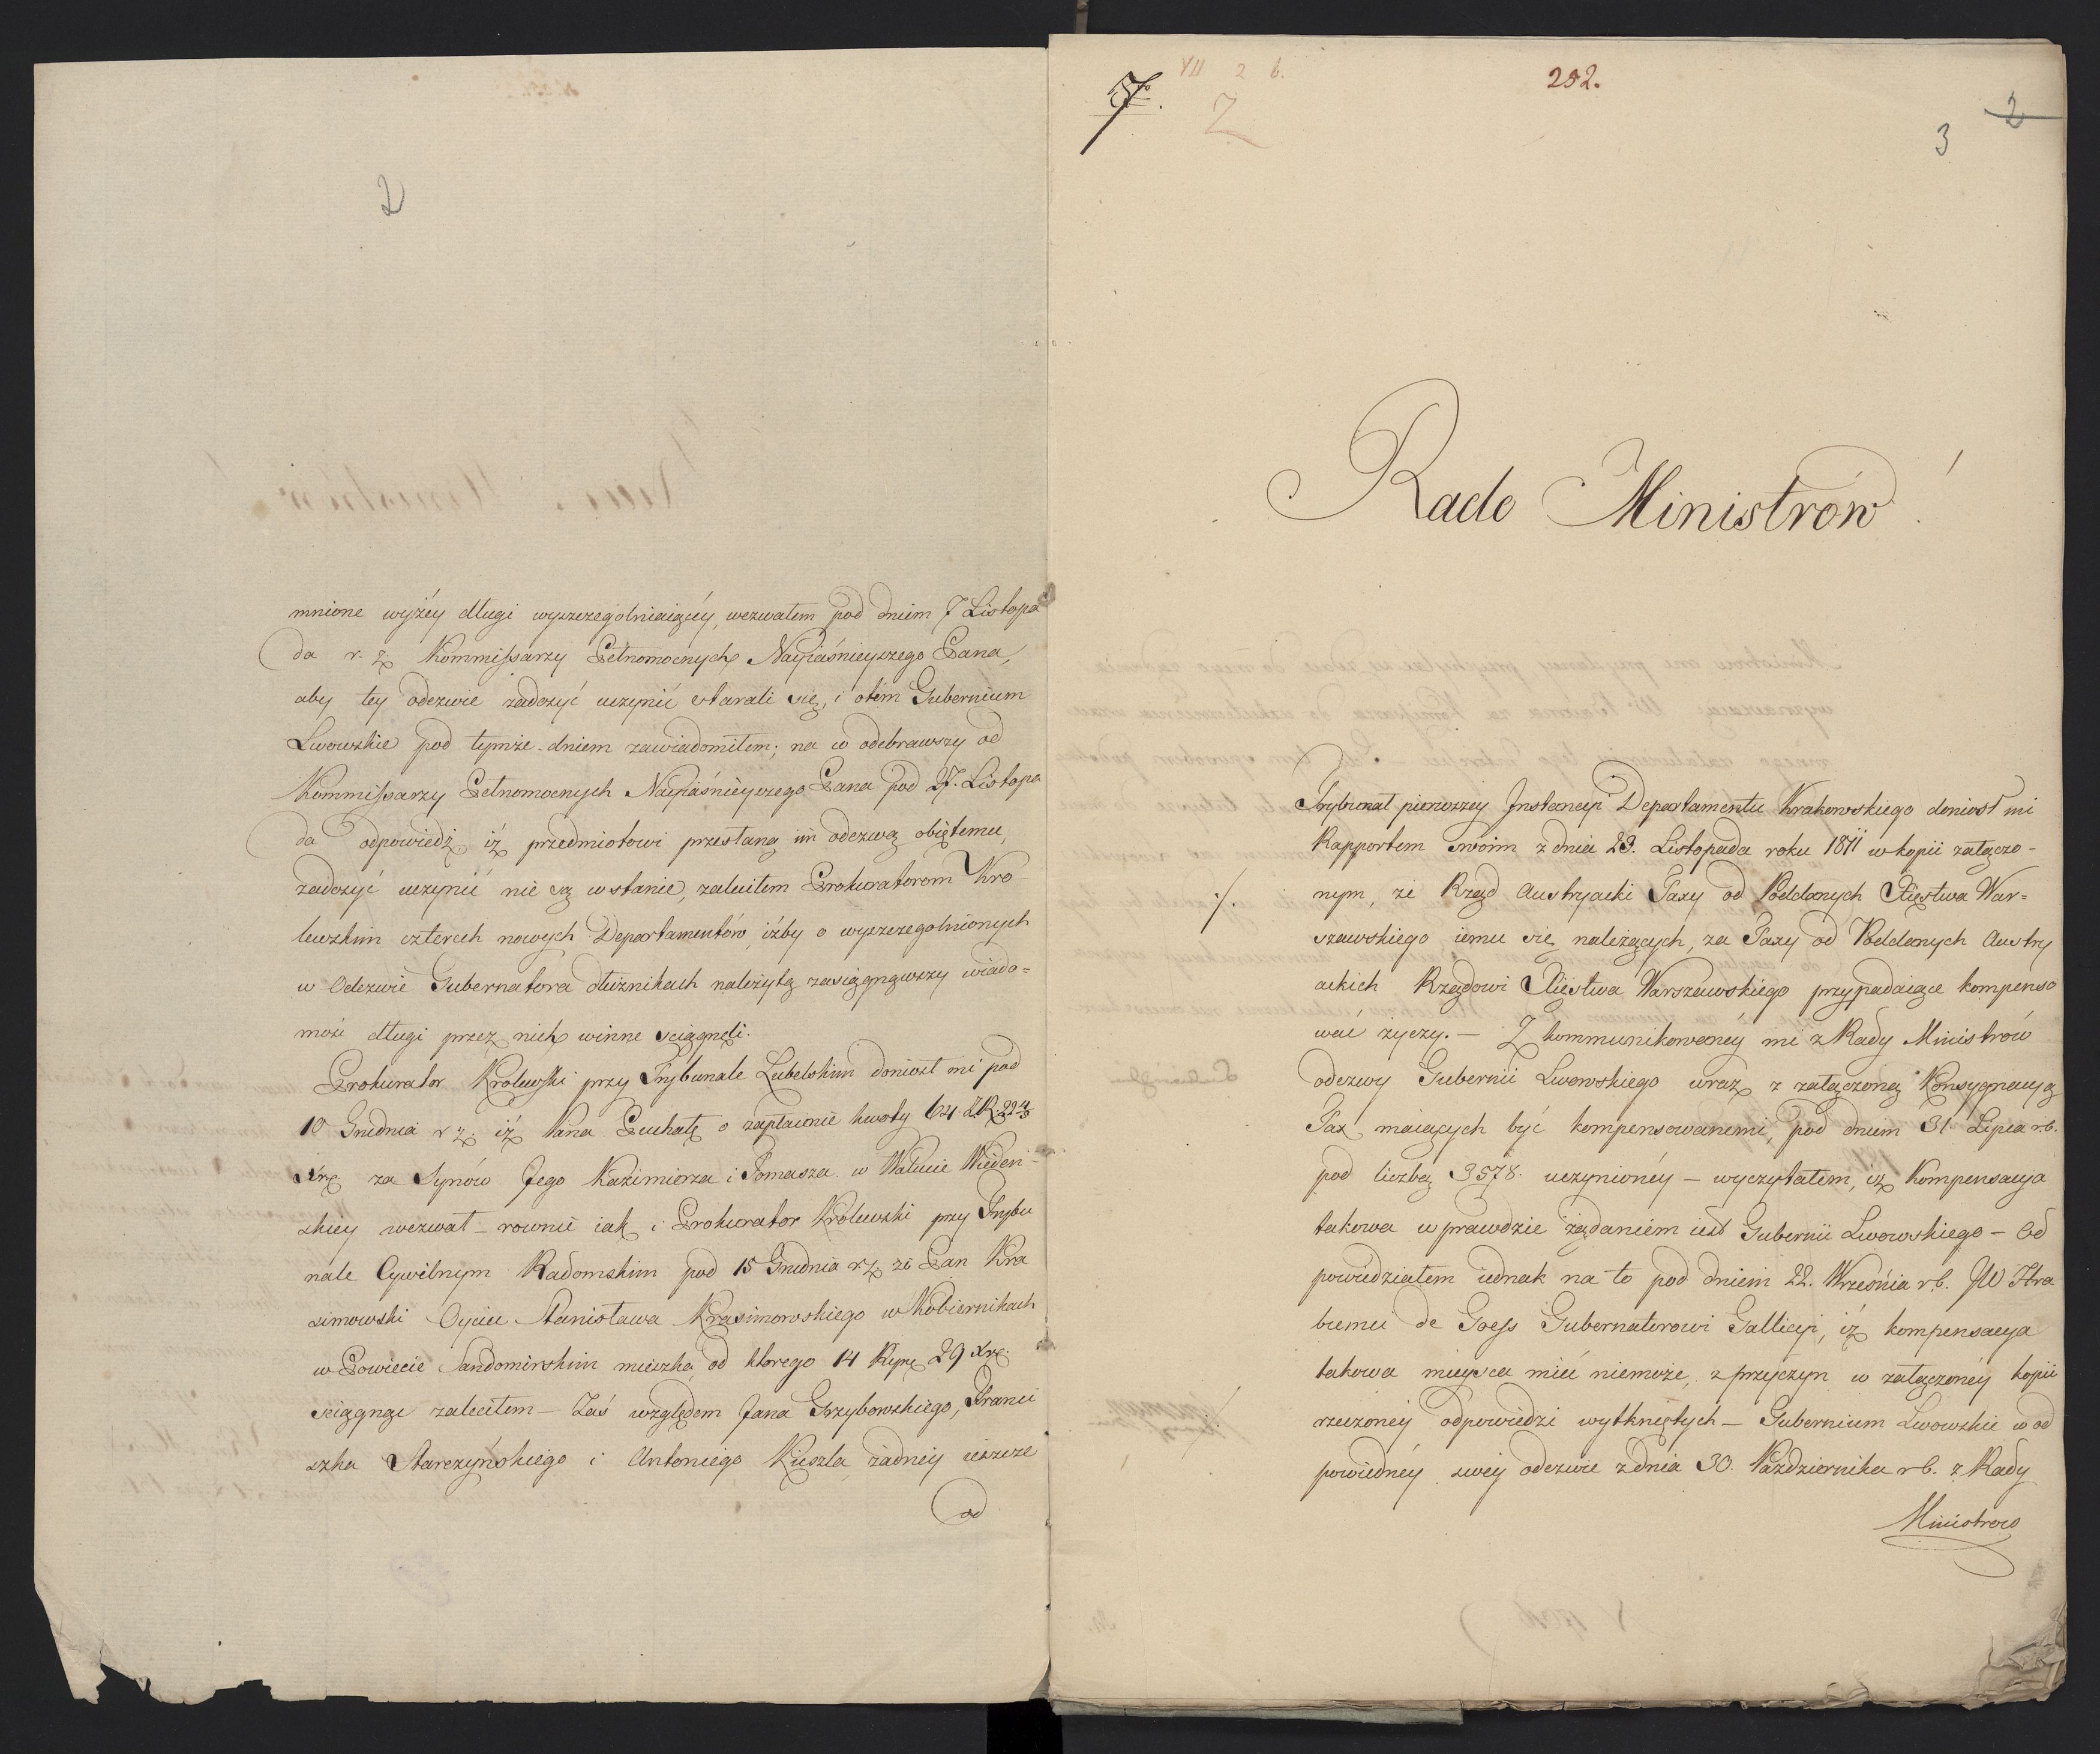 2
mnione wyżéy długi wyszczegolniaiącéy, wezwałem pod dniem 7 Listopa
da r. z. Kommissarzy Pełnomocnych Nayiaśnieyszego Pana,
aby tey odezwie zadosyć uczynić starali się, i otém Gubernium
Lwowskie pod tymże dniem zawiadomiłem; na co odebrawszy od
Kommissarzy Pełnomocnych Nayiaśnieyszego Pana pod 27. Listopa
da odpowiedź, iż przedmiotowi przesłaną im odezwą obiętemu,
zadosyć uczynić nie są w stanie, zaleciłem Prokuratorom Kro
lewskim czterech nowych Departamentów, iżby o wyszczegolnionych
w Odezwie Gubernatora dłużnikach należytą zasiągnąwszy wiado=
mość długi przez nich winne sciągnęli.
Prokurator Krolewski przy Trybunale Lubelskim doniosł mi pod
10 Grudnia r. z. iż Pana Puchałę o zapłacenie kwoty 64 ZR. 22 4/8
Xrę za Synów Jego Kazimiorza i Tomasza w Walucie Wiedeń-
skiey wezwał – rownie iak i Prokurator Krolewski przy Trybu
nale Cywilnym Radomskim pod 15 Grudnia r. z. że Pan Kra
simowski Oyciec Stanisława Krasimowskiego w Kobiernikach
w Powiecie Sandomirskim mieszka, od ktorego 14 Ryn 29 Xrę.
sciągnąć zaleciłem – Zaś względem Jana Grzybowskiego, Franci
szka Starczyńskiego i Antoniego Kuszla żadney ieszcze
od
7.
VII 2 b.
2
252.
2
3
Rada Ministrów!
Trybunał pierwszey Instancyi Departamentu Krakowskiego doniosł mi
Rapportem swoim z dnia 23. Listopada roku 1811 w kopii załączo-
./. nym, że Rząd Austryacki Taxy od Poddanych Xięstwa War=
szawskiego iemu się należących, za Taxy od Poddanych Austry
ackich Rządowi Xięstwa Warszawskiego przypadaiące kompenso
wać życzy. – Z kommunikowanéy mi z Rady Ministrów
odezwy Gubernii Lwowskiego wraz z załączoną Konsygnacyą
Tax maiących być kompensowanemi, pod dniem 31 Lipca r.b.
pod liczbą 3578. uczynionéy – wyczytałem, iż Kompensacya
takowa w prawdzie żądaniem iest Gubernii Lwowskiego – Od
powiedziałem iednak na to pod dniem 22. Września r.b. JW Hra
biemu de Goess Gubernatorowi Gallicyi, iż kompensacya
takowa mieysca mieć niemoże, z przyczyn w załączonéy kopii
rzeczoney odpowiedzi wytkniętych – Gubernium Lwowskie w od
powiednéy swey odezwie z dnia 30. Października r.b. z Rady
Ministrow